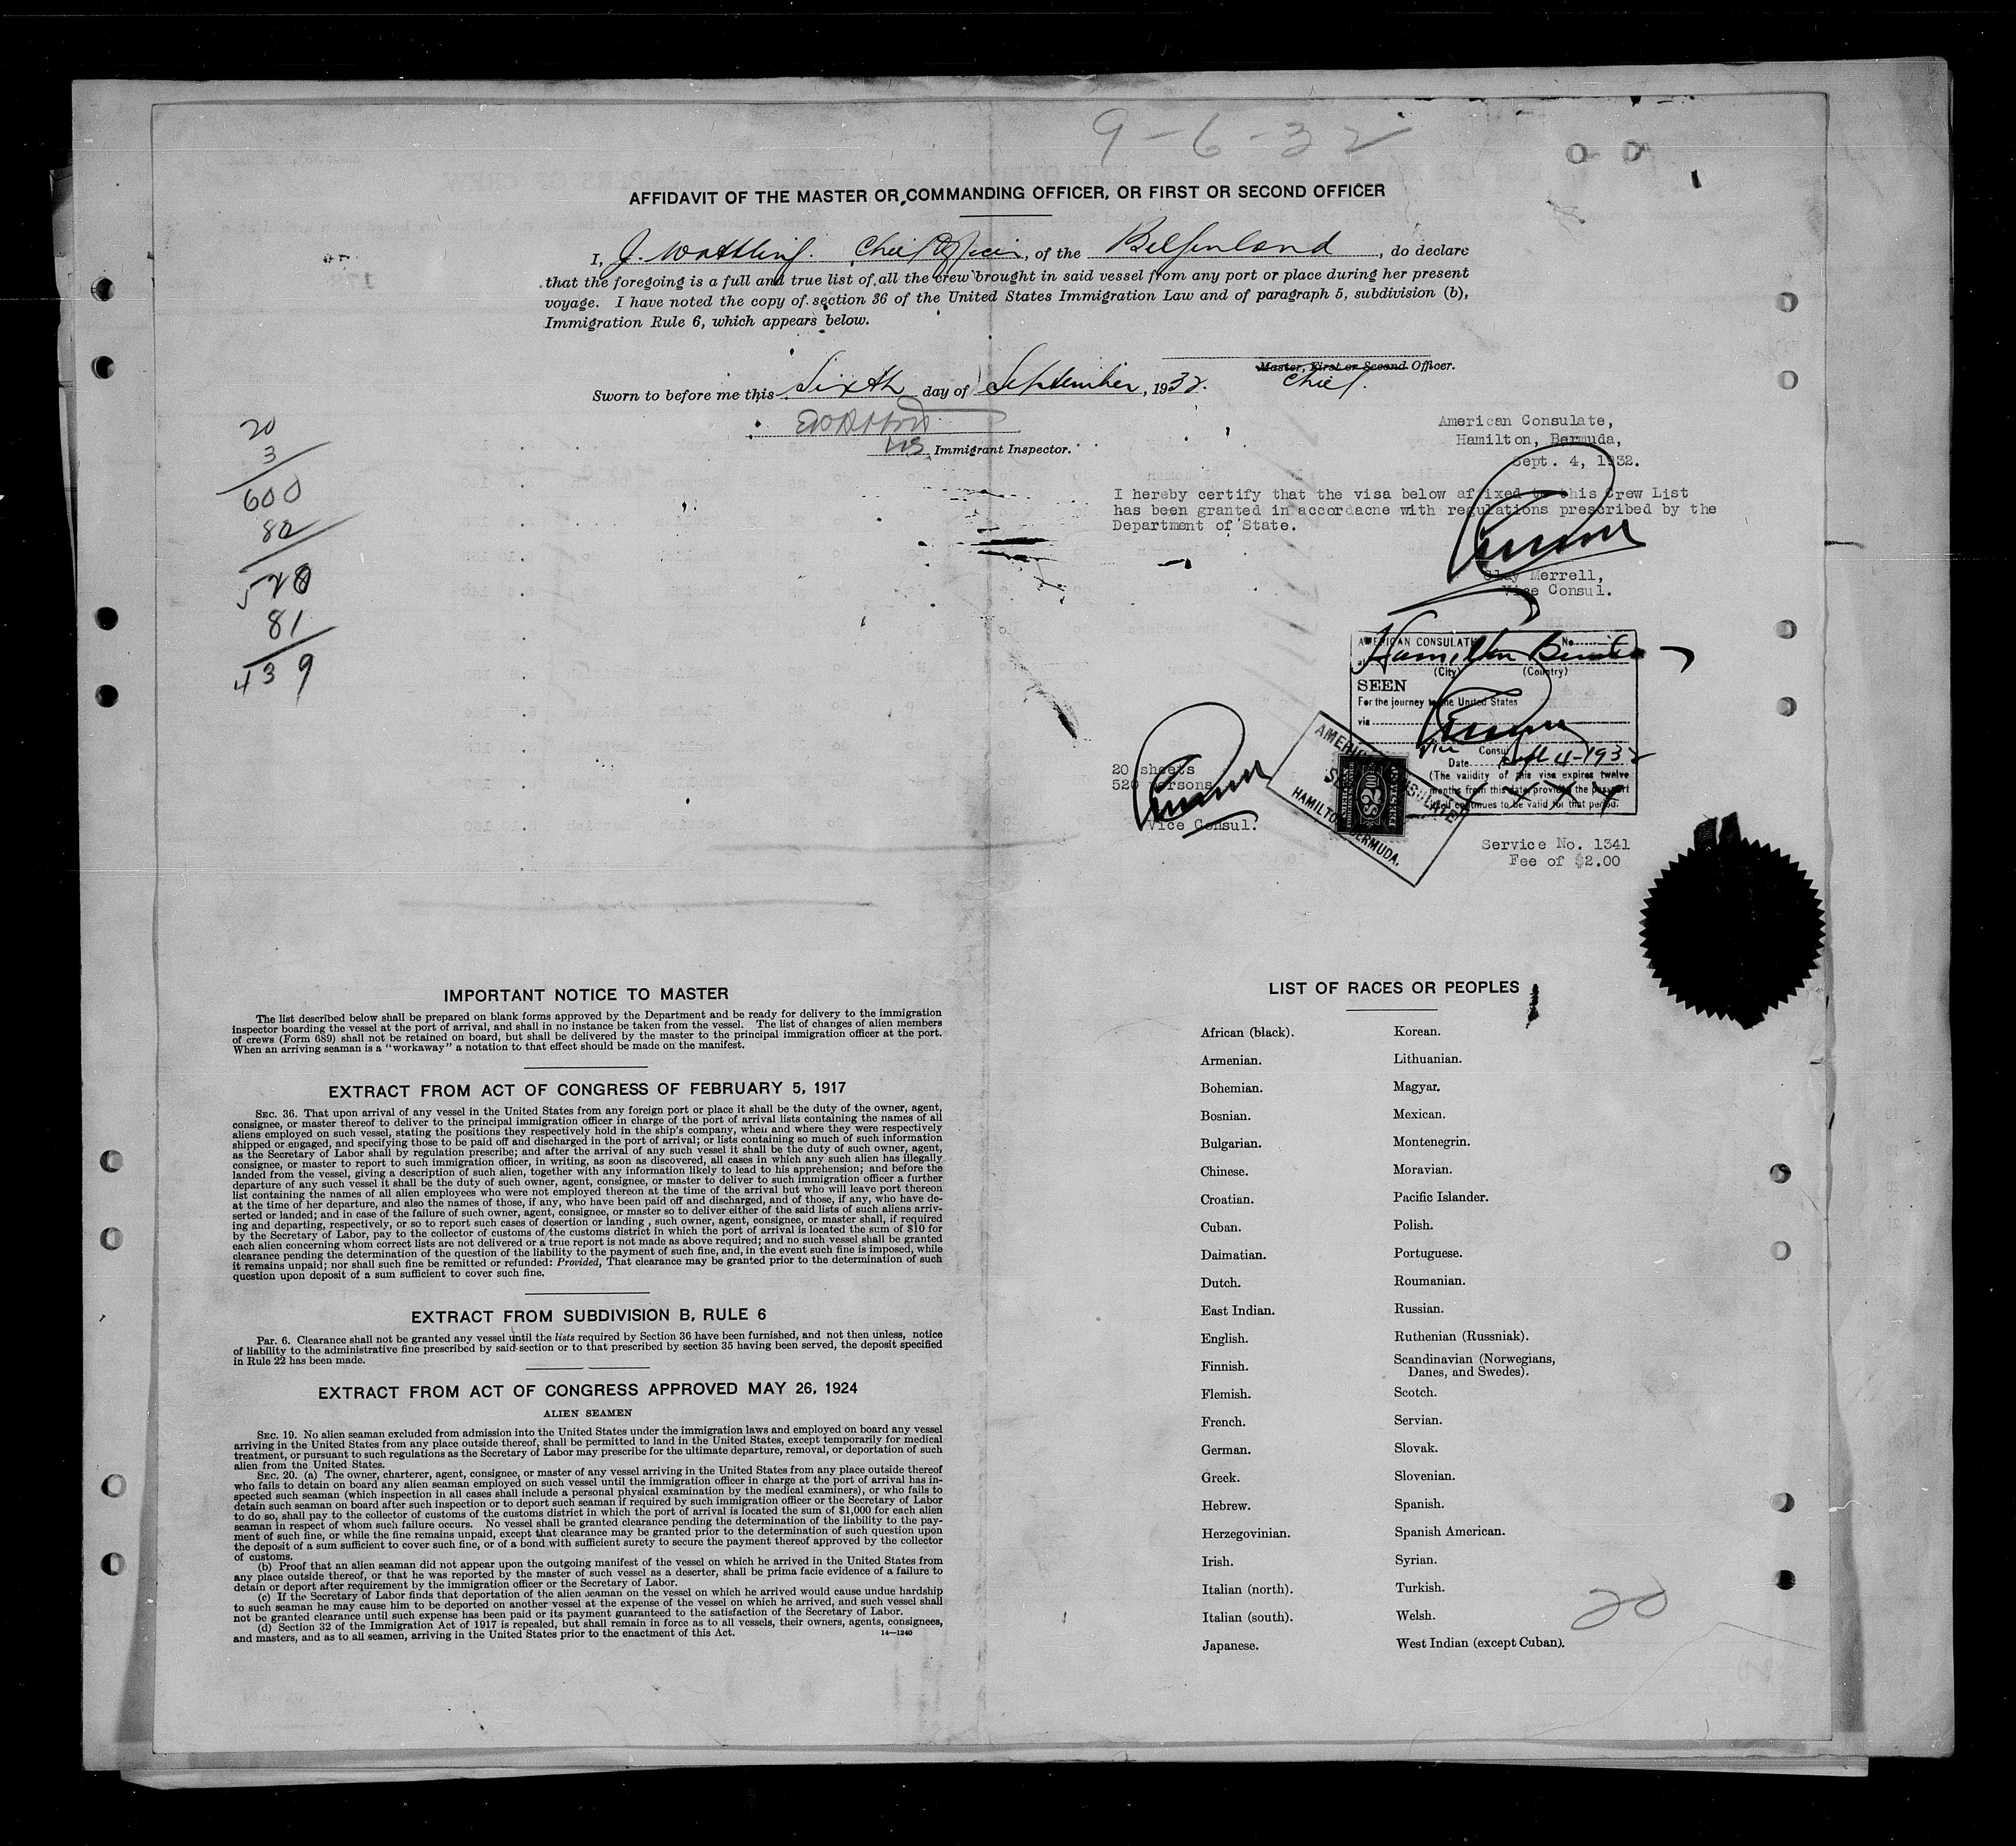 9-6-32
AFFIDAVIT OF THE MASTER OR COMMANDING OFFICER, OR FIRST OR SECOND OFFICER
I, J. Wattling. Chief Officer, of the Belgenland, do declare
that the foregoing is a full and true list of all the crew brought in said vessel from any port or place during her present
voyage. I have noted the copy of section 36 of the United States Immigration Law and of paragraph 5, subdivision (b),
Immigration Rule 6, which appears below.
Master, First or Second Officer.
Chief.
Sworn to before me this Sixth day of September, 1932.
US Immigrant Inspector.
20
3
600
80
520
81
439
American Consulate,
Hamilton, Bermuda,
Sept. 4, 1932.
I hereby certify that the visa below affixed to this Crew List
has been granted in accordacne with regulations prescribed by the
Department of State.
Clay Merrell,
Vice Consul.
AMERICAN CONSULATE No
at Hamilton Bermuda
(City) (Country)
SEEN
For the journey to the United States
via
Vice Consul
Date Sept 4-1932
(The validity of this visa expires twelve
months from this date, provided the passport
itself continues to be valid for that period.
20 sheets
520 persons
Vice Consul.
AMERICAN CONSULATE
HAMILTON, BERMUDA.
$2.00
Service No. 1341
Fee of $2.00
IMPORTANT NOTICE TO MASTER
The list described below shall be prepared on blank forms approved by the Department and be ready for delivery to the immigration
inspector boarding the vessel at the port of arrival, and shall in no instance be taken from the vessel. The list of changes of alien members
of crews (Form 689) shall not be retained on board, but shall be delivered by the master to the principal immigration officer at the port.
When an arriving seaman is a "workaway" a notation to that effect should be made on the manifest.
EXTRACT FROM ACT OF CONGRESS OF FEBRUARY 5, 1917
SEC. 36. That upon arrival of any vessel in the United States from any foreign port or place it shall be the duty of the owner, agent,
consignee, or master thereof to deliver to the principal immigration officer in charge of the port of arrival lists containing the names of all
aliens employed on such vessel, stating the positions they respectively hold in the ship's company, when and where they were respectively
shipped or engaged, and specifying those to be paid off and discharged in the port of arrival; or lists containing so much of such information
as the Secretary of Labor shall by regulation prescribe; and after the arrival of any such vessel it shall be the duty of such owner, agent,
consignee, or master to report to such immigration officer, in writing, as soon as discovered, all cases in which any such alien has illegally
landed from the vessel, giving a description of such alien, together with any information likely to lead to his apprehension; and before the
departure of any such vessel it shall be the duty of such owner, agent, consignee, or master to deliver to such immigration officer a further
list containing the names of all alien employees who were not employed thereon at the time of the arrival but who will leave port thereon
at the time of her departure, and also the names of those, if any, who have been paid off and discharged, and of those, if any, who have de-
serted or landed; and in case of the failure of such owner, agent, consignee, or master so to deliver either of the said lists of such aliens arriv-
ing and departing, respectively, or so to report such cases of desertion or landing , such owner, agent, consignee, or master shall, if required
by the Secretary of Labor, pay to the collector of customs of the customs district in which the port of arrival is located the sum of $10 for
each alien concerning whom correct lists are not delivered or a true report is not made as above required; and no such vessel shall be granted
clearance pending the determination of the question of the liability to the payment of such fine, and, in the event such fine is imposed, while
it remains unpaid; nor shall such fine be remitted or refunded: Provided, That clearance may be granted prior to the determination of such
question upon deposit of a sum sufficient to cover such fine.
EXTRACT FROM SUBDIVISION B, RULE 6
Par. 6. Clearance shall not be granted any vessel until the lists required by Section 36 have been furnished, and not then unless, notice
of liability to the administrative fine prescribed by said section or to that prescribed by section 35 having been served, the deposit specified
in Rule 22 has been made.
EXTRACT FROM ACT OF CONGRESS APPROVED MAY 26, 1924
ALIEN SEAMEN
SEC. 19. No alien seaman excluded from admission into the United States under the immigration laws and employed on board any vessel
arriving in the United States from any place outside thereof, shall be permitted to land in the United States, except temporarily for medical
treatment, or pursuant to such regulations as the Secretary of Labor may prescribe for the ultimate departure, removal, or deportation of such
alien from the United States.
SEC. 20. (a) The owner, charterer, agent, consignee, or master of any vessel arriving in the United States from any place outside thereof
who fails to detain on board any alien seaman employed on such vessel until the immigration officer in charge at the port of arrival has in-
spected such seaman (which inspection in all cases shall include a personal physical examination by the medical examiners), or who fails to
detain such seaman on board after such inspection or to deport such seaman if required by such immigration officer or the Secretary of Labor
to do so, shall pay to the collector of customs of the customs district in which the port of arrival is located the sum of $1,000 for each alien
seaman in respect of whom such failure occurs. No vessel shall be granted clearance pending the determination of the liability to the pay-
ment of such fine, or while the fine remains unpaid, except that clearance may be granted prior to the determination of such question upon
the deposit of a sum sufficient to cover such fine, or of a bond with sufficient surety to secure the payment thereof approved by the collector
of customs.
(b) Proof that an alien seaman did not appear upon the outgoing manifest of the vessel on which he arrived in the United States from
any place outside thereof, or that he was reported by the master of such vessel as a deserter, shall be prima facie evidence of a failure to
detain or deport after requirement by the immigration officer or the Secretary of Labor.
(c) If the Secretary of Labor finds that deportation of the alien seaman on the vessel on which he arrived would cause undue hardship
to such seaman he may cause him to be deported on another vessel at the expense of the vessel on which he arrived, and such vessel shall
not be granted clearance until such expense has been paid or its payment guaranteed to the satisfaction of the Secretary of Labor.
(d) Section 32 of the Immigration Act of 1917 is repealed, but shall remain in force as to all vessels, their owners, agents, consignees,
and masters, and as to all seamen, arriving in the United States prior to the enactment of this Act. 14—1240
LIST OF RACES OR PEOPLES
African (black). Korean.
Armenian. Lithuanian.
Bohemian. Magyar.
Bosnian. Mexican.
Bulgarian. Montenegrin.
Chinese. Moravian.
Croatian. Pacific Islander.
Cuban. Polish.
Dalmatian. Portuguese.
Dutch. Roumanian.
East Indian. Russian.
English. Ruthenian (Russniak).
Finnish. Scandinavian (Norwegians,
Danes, and Swedes).
Flemish. Scotch.
French. Servian.
German. Slovak.
Greek. Slovenian.
Hebrew. Spanish.
Herzegovinian. Spanish American.
Irish. Syrian.
Italian (north). Turkish.
Italian (south). Welsh.
Japanese. West Indian (except Cuban).
20